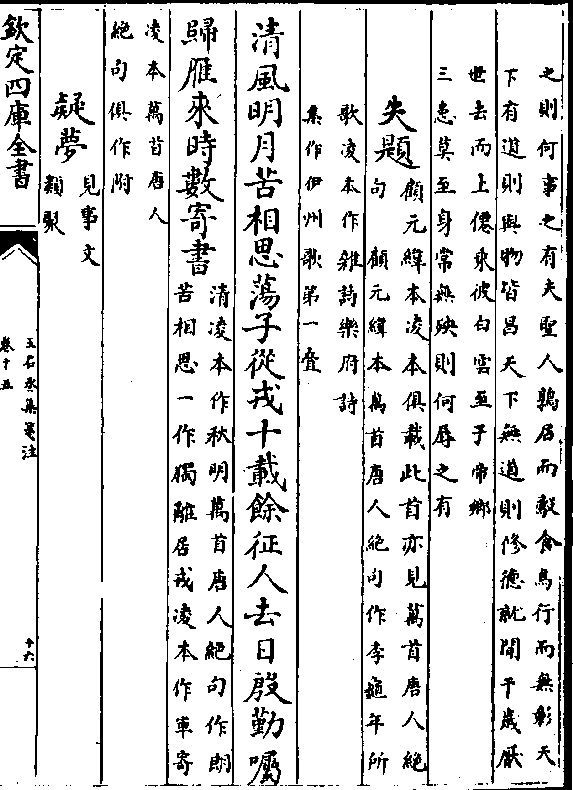 之則何事之有夫聖人鶉居而鷇食鳥行而無彰天
下有道則與物皆昌天下無道則修德就閒千歲厭
世去而上僊乘彼白雲至于帝鄉
三患莫至身常無殃則何辱之有
失題
顧元緯本凌本俱載此首亦見萬首唐人絕
句 顧元緯本萬首唐人絕句作李龜年所
歌凌本作雜詩樂府詩
集作伊州歌第一疊
清風明月苦相思蕩子從戎十載餘征人去日殷勤囑
歸雁來時數寄書
清凌本作秋明萬首唐人絕句作朗
苦相思一作獨離居戎凌本作軍寄
凌本萬首唐人
絕句俱作附
疑夢
見事文
類聚
欽定四庫全書
王右丞集箋注
卷十五
十六